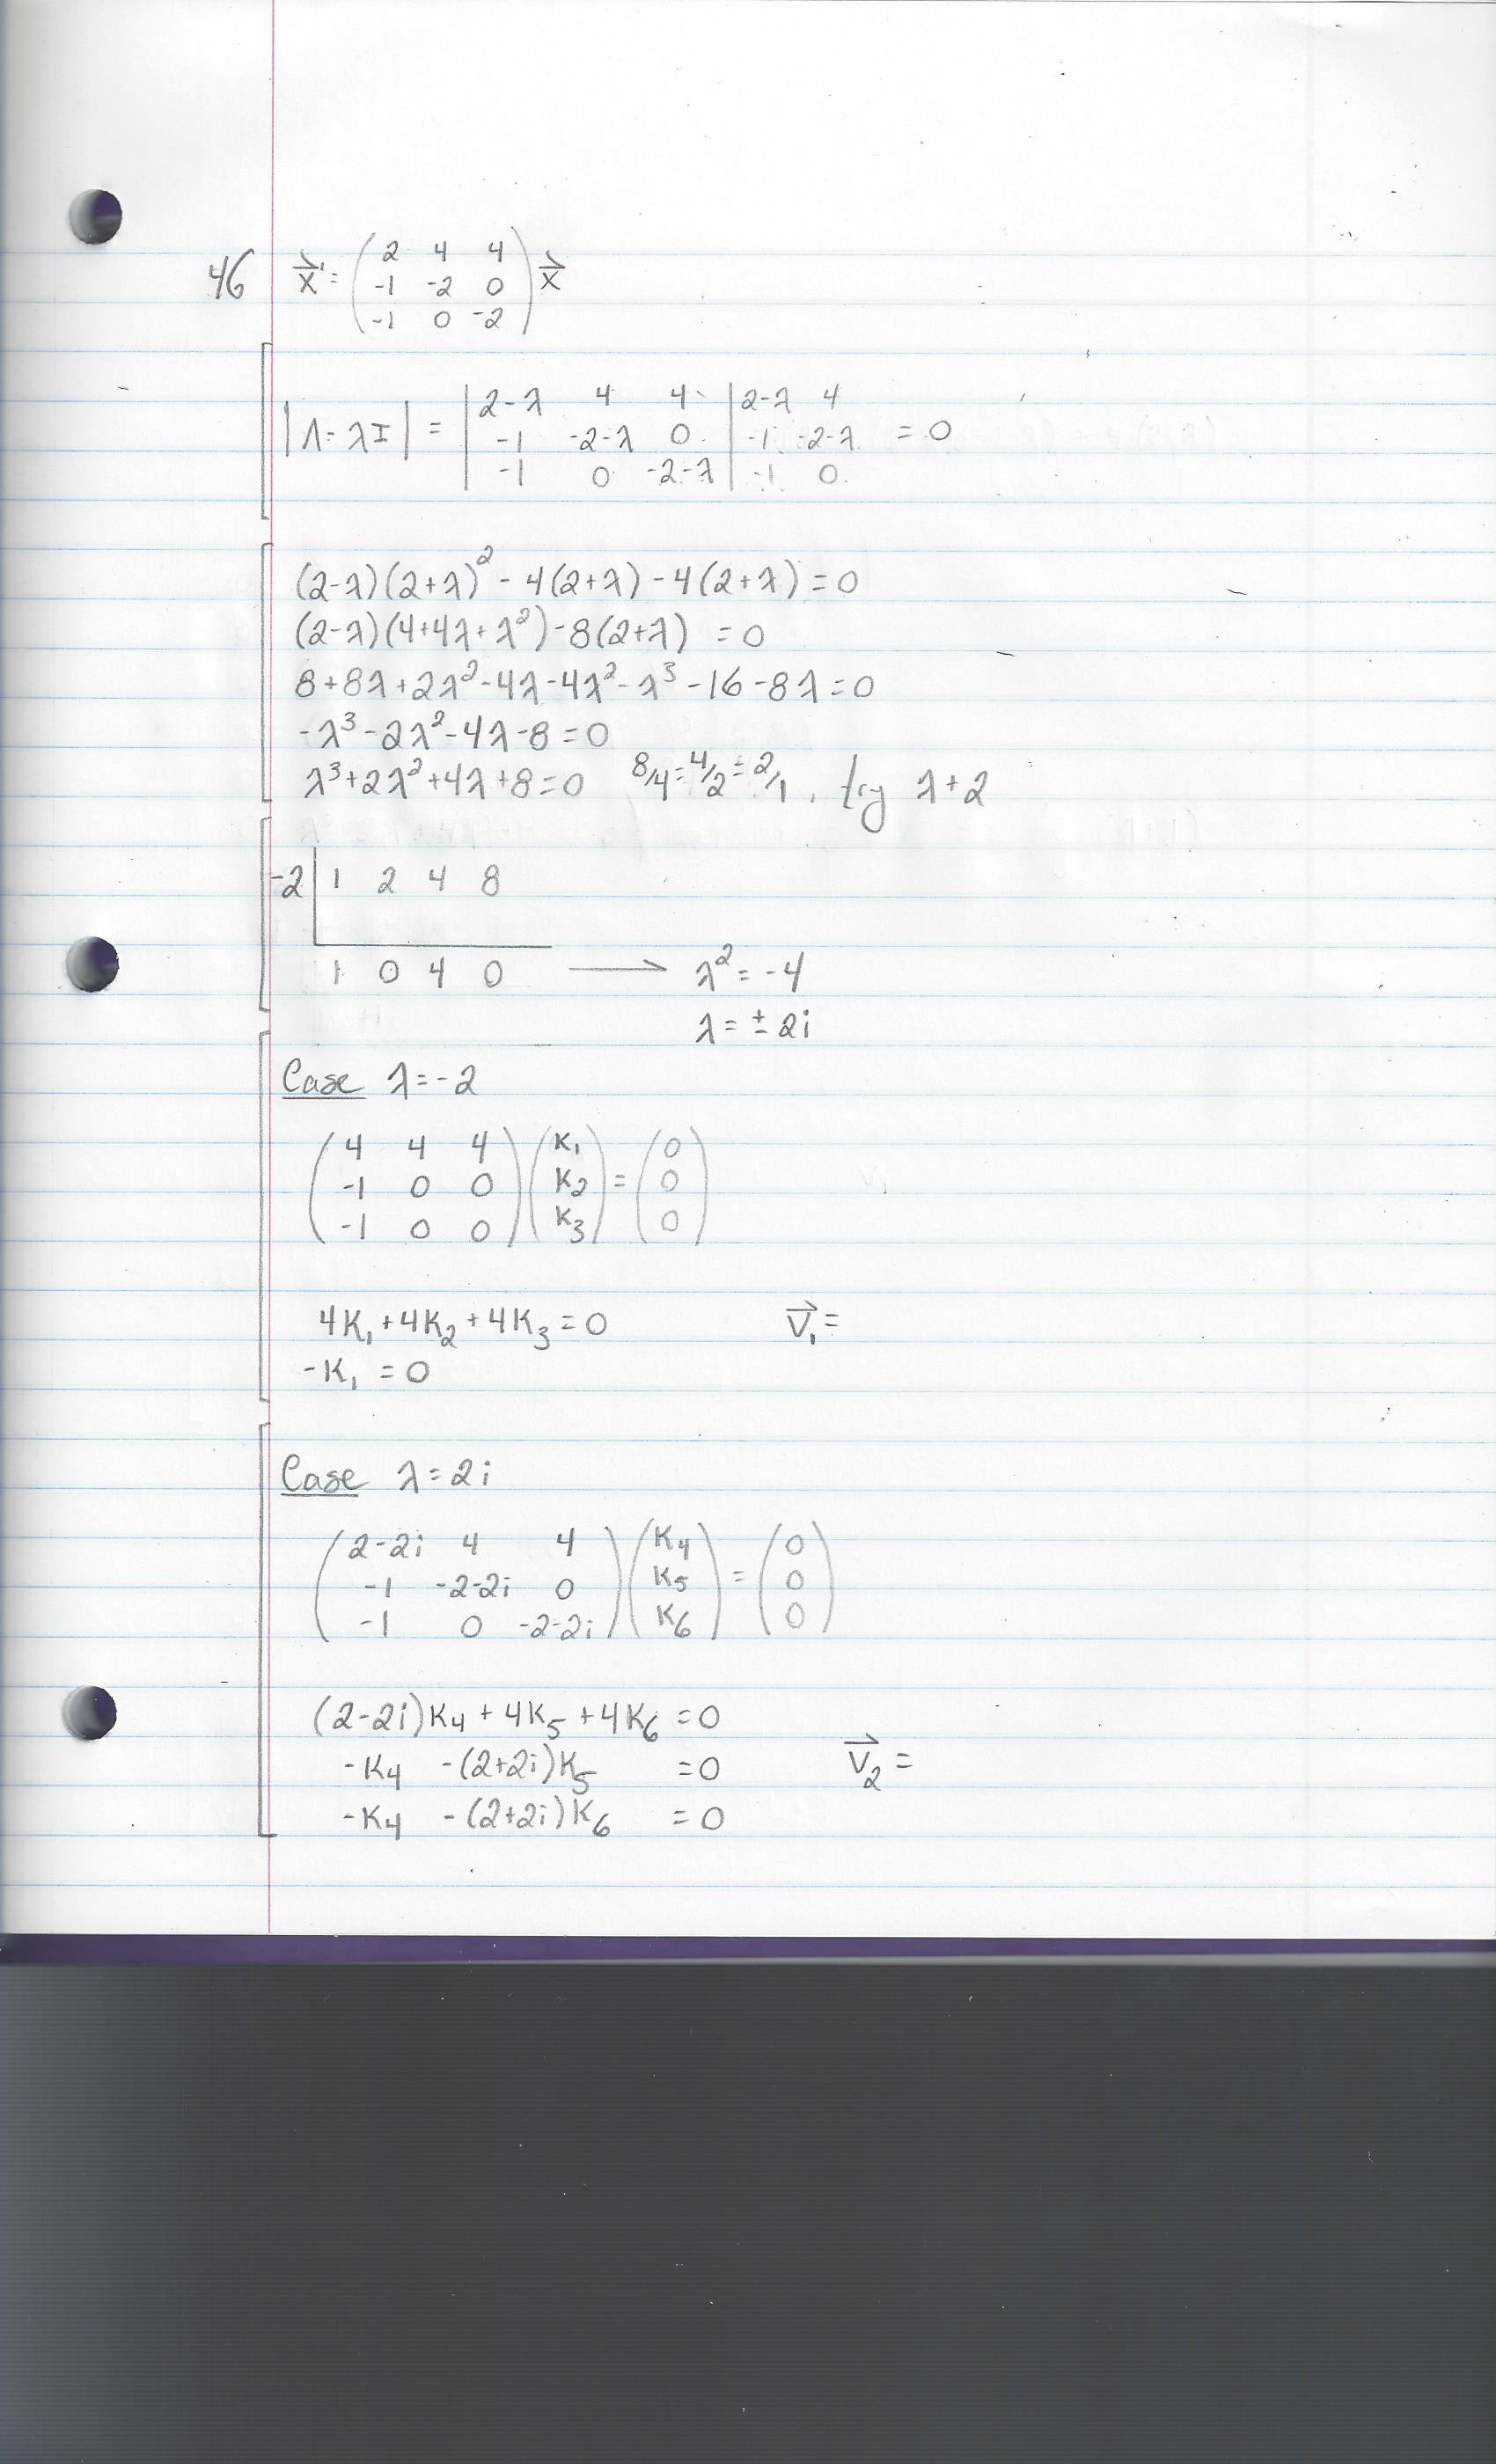 46 x⃗' = ( 2 4 4
-1 -2 0
-1 0 -2 ) x⃗
|A-λI| = | 2-λ 4 4 | 2-λ 4
-1 -2-λ 0 | -1 -2-λ = 0
-1 0 -2-λ | -1 0
(2-λ)(2+λ)² - 4(2+λ) - 4(2+λ) = 0
(2-λ)(4+4λ+λ²) - 8(2+λ) = 0
8+8λ+2λ²-4λ-4λ²-λ³-16-8λ=0
-λ³-2λ²-4λ-8=0
λ³+2λ²+4λ+8=0 8/4=4/2=2/1, try λ+2
-2| 1 2 4 8
1 0 4 0 → λ²=-4
λ=±2i
Case λ=-2
( 4 4 4 ) ( K₁ ) = ( 0 )
( -1 0 0 ) ( K₂ ) = ( 0 )
( -1 0 0 ) ( K₃ ) = ( 0 )
4K₁+4K₂+4K₃=0 V⃗₁=
-K₁=0
Case λ=2i
( 2-2i 4 4 ) ( K₄ ) = ( 0 )
( -1 -2-2i 0 ) ( K₅ ) = ( 0 )
( -1 0 -2-2i ) ( K₆ ) = ( 0 )
(2-2i)K₄+4K₅+4K₆=0
-K₄ -(2+2i)K₅ =0 V⃗₂=
-K₄ -(2+2i)K₆ =0